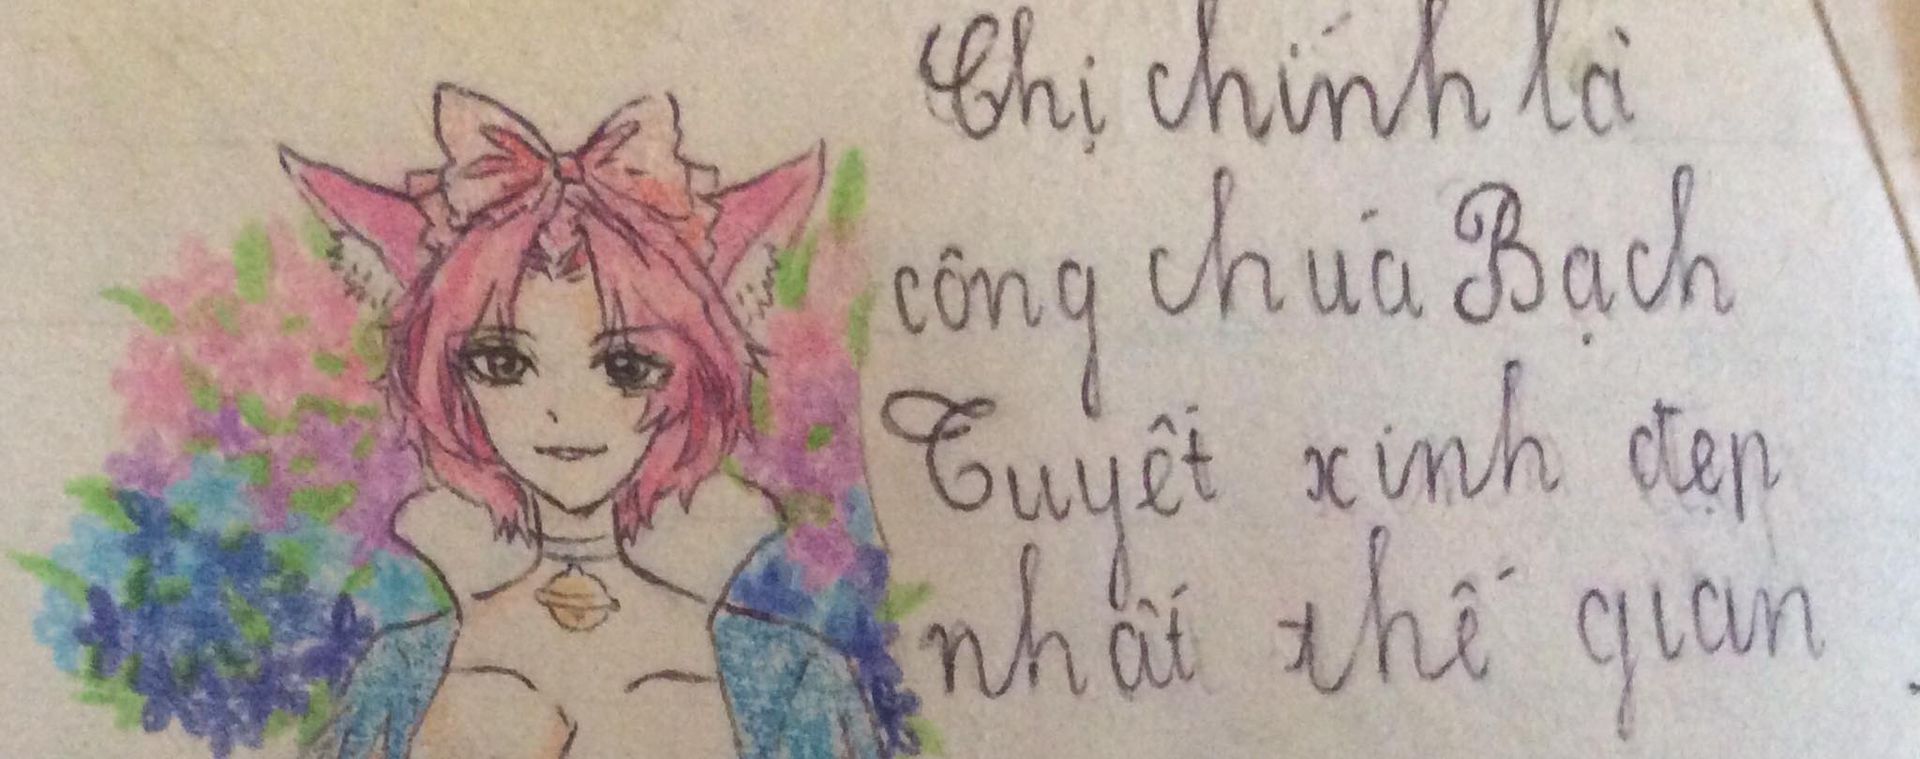 Chị chính là
công chúa Bạch
Tuyết xinh đẹp
nhất thế gian